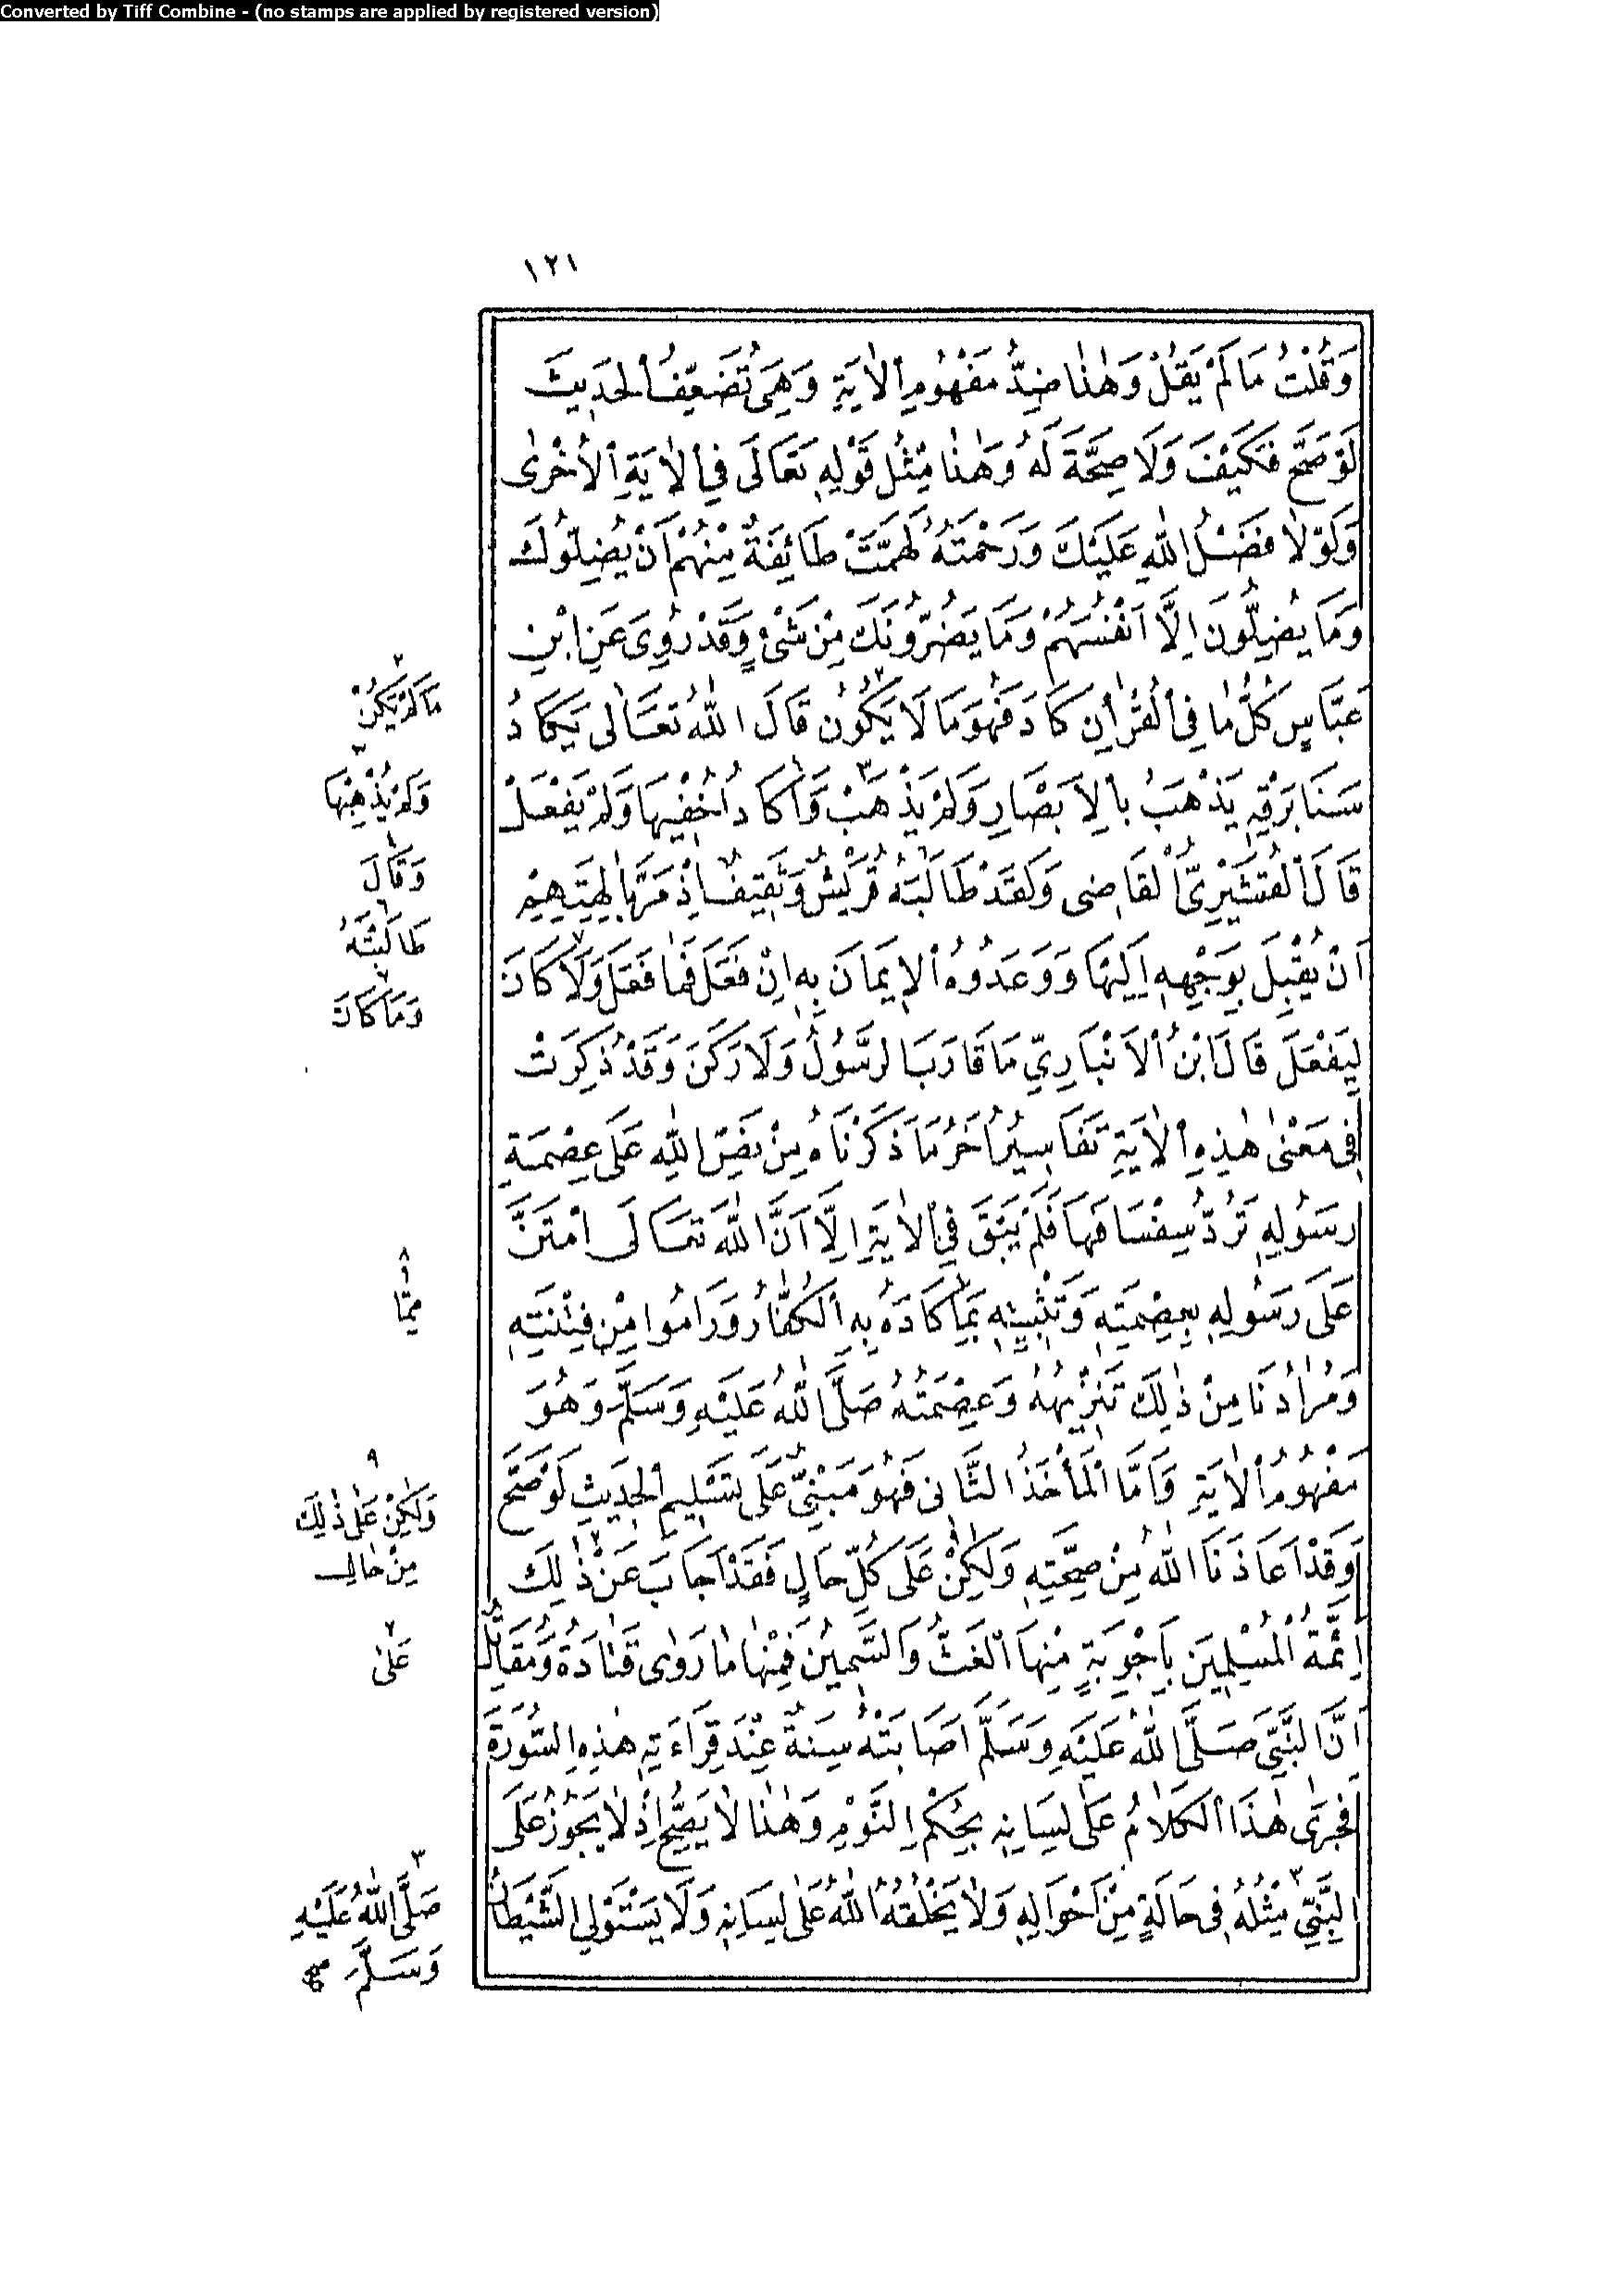 Converted by Tiff Combine - (no stamps are applied by registered version)
١٢١
وَقُلْتُ مَا لَمْ يَقُلْ وَهٰذَا ضِدُّ مَفْهُومِ الْاٰيَةِ وَهِىَ تُضَعِّفُ الْحَدِيثَ
لَوْ صَحَّ فَكَيْفَ وَلَا صِحَّةَ لَهُ وَهٰذَا مِثْلُ قَوْلِهِ تَعَالَى فِى الْاٰيَةِ الْاُخْرٰى
وَلَوْلَا فَضْلُ اللّٰهِ عَلَيْكَ وَرَحْمَتُهُ لَهَمَّتْ طَائِفَةٌ مِنْهُمْ اَنْ يُضِلُّوكَ
وَمَا يُضِلُّونَ اِلَّا اَنْفُسَهُمْ وَمَا يَضُرُّونَكَ مِنْ شَىْءٍ وَقَدْ رُوِىَ عَنِ ابْنِ
عَبَّاسٍ كُلُّ مَا فِى الْقُرْاٰنِ كَادَ فَهُوَ مَا لَا يَكُونُ قَالَ اللّٰهُ تَعَالٰى يَكَادُ
سَنَا بَرْقِهِ يَذْهَبُ بِالْاَبْصَارِ وَلَمْ يَذْهَبْ وَاَكَادُ اُخْفِيهَا وَلَمْ يَفْعَلْ
قَالَ الْقُشَيْرِىُّ الْقَاضِى وَلَقَدْ طَالَبَهُ قُرَيْشٌ وَثَقِيفٌ اِذْ مَرَّ بِاٰلِهَتِهِمْ
اَنْ يُقْبِلَ بِوَجْهِهِ اِلَيْهَا وَوَعَدُوهُ الْاِيمَانَ بِهِ اِنْ فَعَلَ فَمَا فَعَلَ وَلَا كَانَ
لِيَفْعَلَ قَالَ ابْنُ الْاَنْبَارِيِّ مَا قَارَبَ الرَّسُولُ وَلَا رَكَنَ وَقَدْ ذُكِرَتْ
فِى مَعْنٰى هٰذِهِ الْاٰيَةِ تَفَاسِيرُ اُخَرُ مَا ذَكَرْنَاهُ مِنْ نَصِّ اللّٰهِ عَلَى عِصْمَةِ
رَسُولِهِ تَرُدُّ سِفْسَافَهَا فَلَمْ يَبْقَ فِى الْاٰيَةِ اِلَّا اَنَّ اللّٰهَ تَعَالَى امْتَنَّ
عَلَى رَسُولِهِ بِعِصْمَتِهِ وَتَثْبِيتِهِ بِمَا كَادَهُ بِهِ الْكُفَّارُ وَرَامُوا مِنْ فِتْنَتِهِ
وَمُرَادُنَا مِنْ ذٰلِكَ تَنْزِيهُهُ وَعِصْمَتُهُ صَلَّى اللّٰهُ عَلَيْهِ وَسَلَّمَ وَهُوَ
مَفْهُومُ الْاٰيَةِ وَاَمَّا الْمَأْخَذُ الثَّانِى فَهُوَ مَبْنِىٌّ عَلَى تَسْلِيمِ الْحَدِيثِ لَوْ صَحَّ
وَقَدْ اَعَاذَنَا اللّٰهُ مِنْ صِحَّتِهِ وَلٰكِنْ عَلَى كُلِّ حَالٍ فَقَدْ اَجَابَ عَنْ ذٰلِكَ
اَئِمَّةُ الْمُسْلِمِينَ بِاَجْوِبَةٍ مِنْهَا الْغَثُّ وَالسَّمِينُ فَمِنْهَا مَا رَوٰى قَتَادَةُ وَمُقَاتِلٌ
اَنَّ النَّبِىَّ صَلَّى اللّٰهُ عَلَيْهِ وَسَلَّمَ اَصَابَتْهُ سِنَةٌ عِنْدَ قِرَاءَتِهِ هٰذِهِ السُّورَةَ
فَجَرٰى هٰذَا الْكَلَامُ عَلَى لِسَانِهِ بِحُكْمِ النَّوْمِ وَهٰذَا لَا يَصِحُّ اِذْ لَا يَجُوزُ عَلَى
النَّبِىِّ مِثْلُهُ فِى حَالَةٍ مِنْ اَحْوَالِهِ وَلَا يَخْلُقُهُ اللّٰهُ عَلَى لِسَانِهِ وَلَا يَسْتَوْلِى الشَّيْطَانُ
٢
مَا لَمْ يَكُنْ
٣
وَلَمْ يُذْهِبْهَا
١
وَقَالَ
٦
طَالَبَتْهُ
٧
وَمَا كَانَ
٨
مِمَّا
٩
وَلٰكِنْ عَلٰى ذٰلِكَ
مِنْ حَالٍ
٢
عَلٰى
٣
صَلَّى اللّٰهُ عَلَيْهِ
وَسَلَّمَ صح